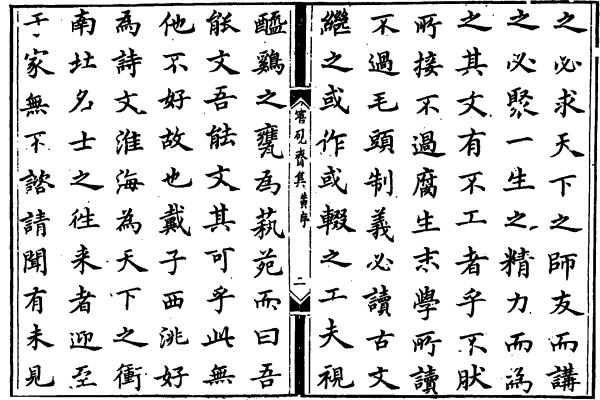 之必求天下之師友而講
之必聚一生之精力而為
之其文有不工者乎不肰
所接不過腐生末學所讀
不過毛頭制義必讀古文
繼之或作或輟之工夫視
寤硯齋集 黃序 二
醯鷄之甕為蓺苑而曰吾
能文吾能文其可乎此無
他不好故也戴子西洮好
為詩文淮海為天下之衝
南北名士之往来者迎至
于家無不諮請聞有未見